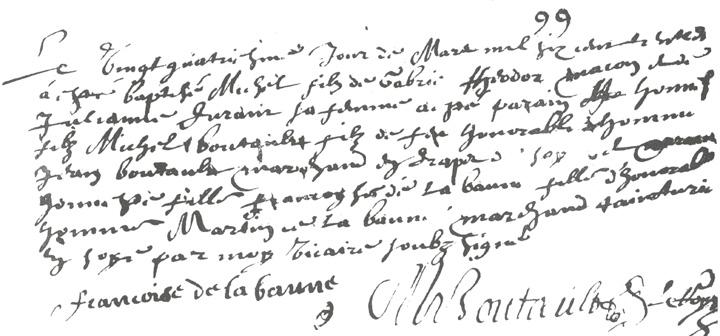 99
Le Vingt quatriesme Jour de Mars mil six cent et
a este baptisé Michel filz de Gabriel Theodor macon et de
Julianne Durant sa femme a esté parain honneste
filz Michel boutault filz de feu honorable homme
Jean boutault marchand de draps et
honneste fille francoise de la baune fille d'honorable
homme Martin de la baune marchand tainturier
par moy Vicaire soubz signé
francoise de la baune
M Boutault